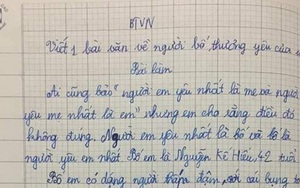 BTVN
Viết 1 bài văn về người bố thương yêu của
Bài làm
Ai cũng bảo "người em yêu nhất là mẹ và người
yêu mẹ nhất là em" nhưng em cho rằng điều đó
không đung. Người em yêu nhất là bố và bố là
người yêu em nhất. Bố em là Nguyễn Kế Hiếu, 42 tuổi
Bố em có dáng người đậm, với cái bụng to